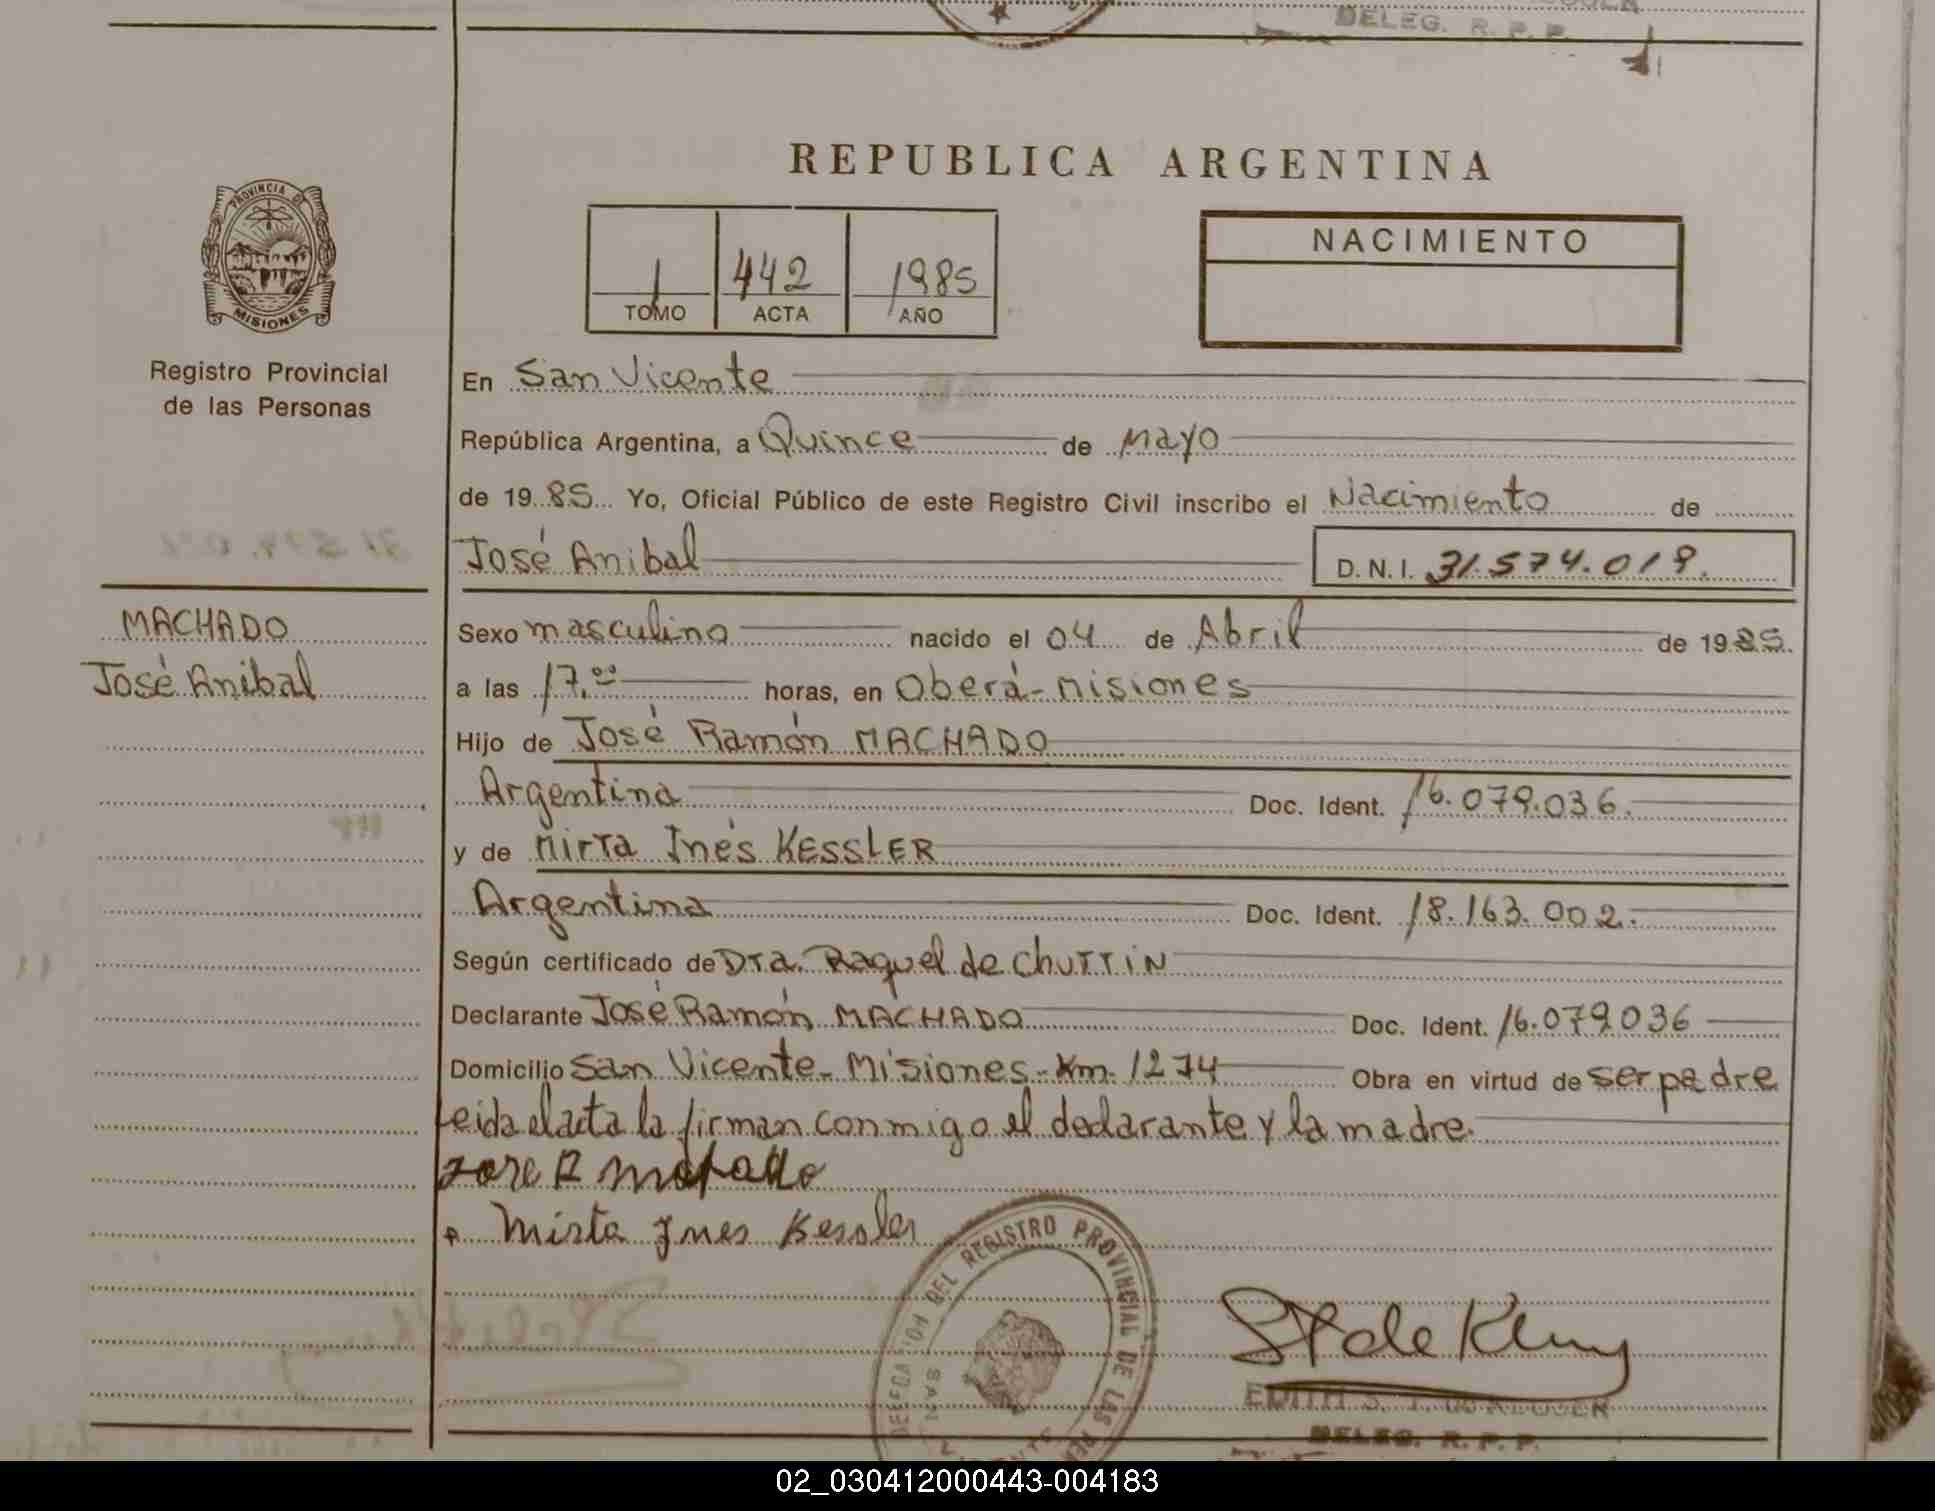 DELEG. R. P. P.
REPUBLICA ARGENTINA
PROVINCIA DE
MISIONES
Registro Provincial
de las Personas
1 442 1985
TOMO ACTA AÑO
NACIMIENTO
En San Vicente
República Argentina, a Quince de Mayo
de 1985 Yo, Oficial Público de este Registro Civil inscribo el Nacimiento de
José Anibal D.N.I. 31.574.019.
MACHADO
José Anibal
Sexo masculino nacido el 04 de Abril de 1985.
a las 17,00 horas, en Oberá-Misiones
Hijo de José Ramón MACHADO
Argentina Doc. Ident. 16.079.036.
y de Mirta Inés KESSLER
Argentina Doc. Ident. 18.163.002.
Según certificado de Dra. Raquel de Churrin
Declarante José Ramón MACHADO Doc. Ident. 16.079036
Domicilio San Vicente-Misiones-Km. 1274 Obra en virtud de ser padre
Leida el acta la firman conmigo el declarante y la madre.
Jose R Machado
Mirta Ines Kessler
DELEGACION DEL REGISTRO PROVINCIAL DE LAS PER
SAN VICENTE
EDITH S. T. de
DELEG. R. P. P.
02_030412000443-004183